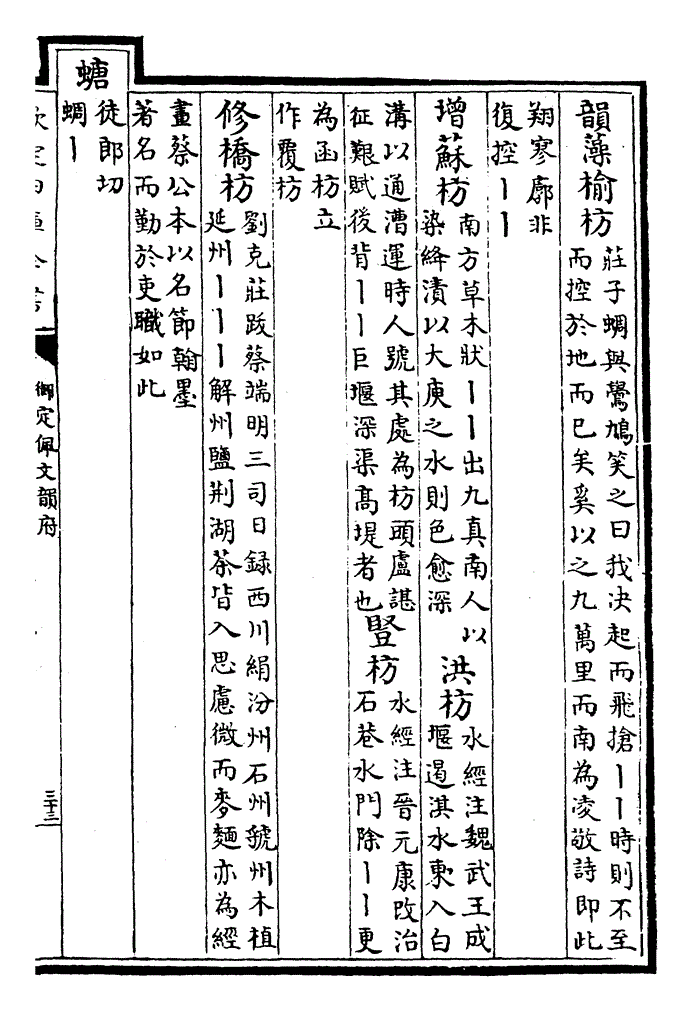 韻藻榆枋
莊子蜩與鷽鳩笑之曰我决起而飛搶丨丨時則不至
而控於地而已矣奚以之九萬里而南為凌敬詩即此
翔寥廓非
復控丨丨
增蘇枋
南方草木狀丨丨出九真南人以
染絳漬以大庾之水則色愈深
洪枋
水經注魏武王成
堰遏淇水東入白
溝以通漕運時人號其處為枋頭盧諶
征艱賦後背丨丨巨堰深渠高堤者也
豎枋
水經注晉元康改治
石巷水門除丨丨更
為函枋立
作覆枋
修橋枋
劉克莊跋蔡端明三司日録西川絹汾州石州虢州木植
延州丨丨丨解州鹽荆湖茶皆入思慮微而麥麵亦為經
畫蔡公本以名節翰墨
著名而勤於吏職如此
螗
徒郎切
蜩丨
欽定四庫全書
御定佩文韻府
三十三